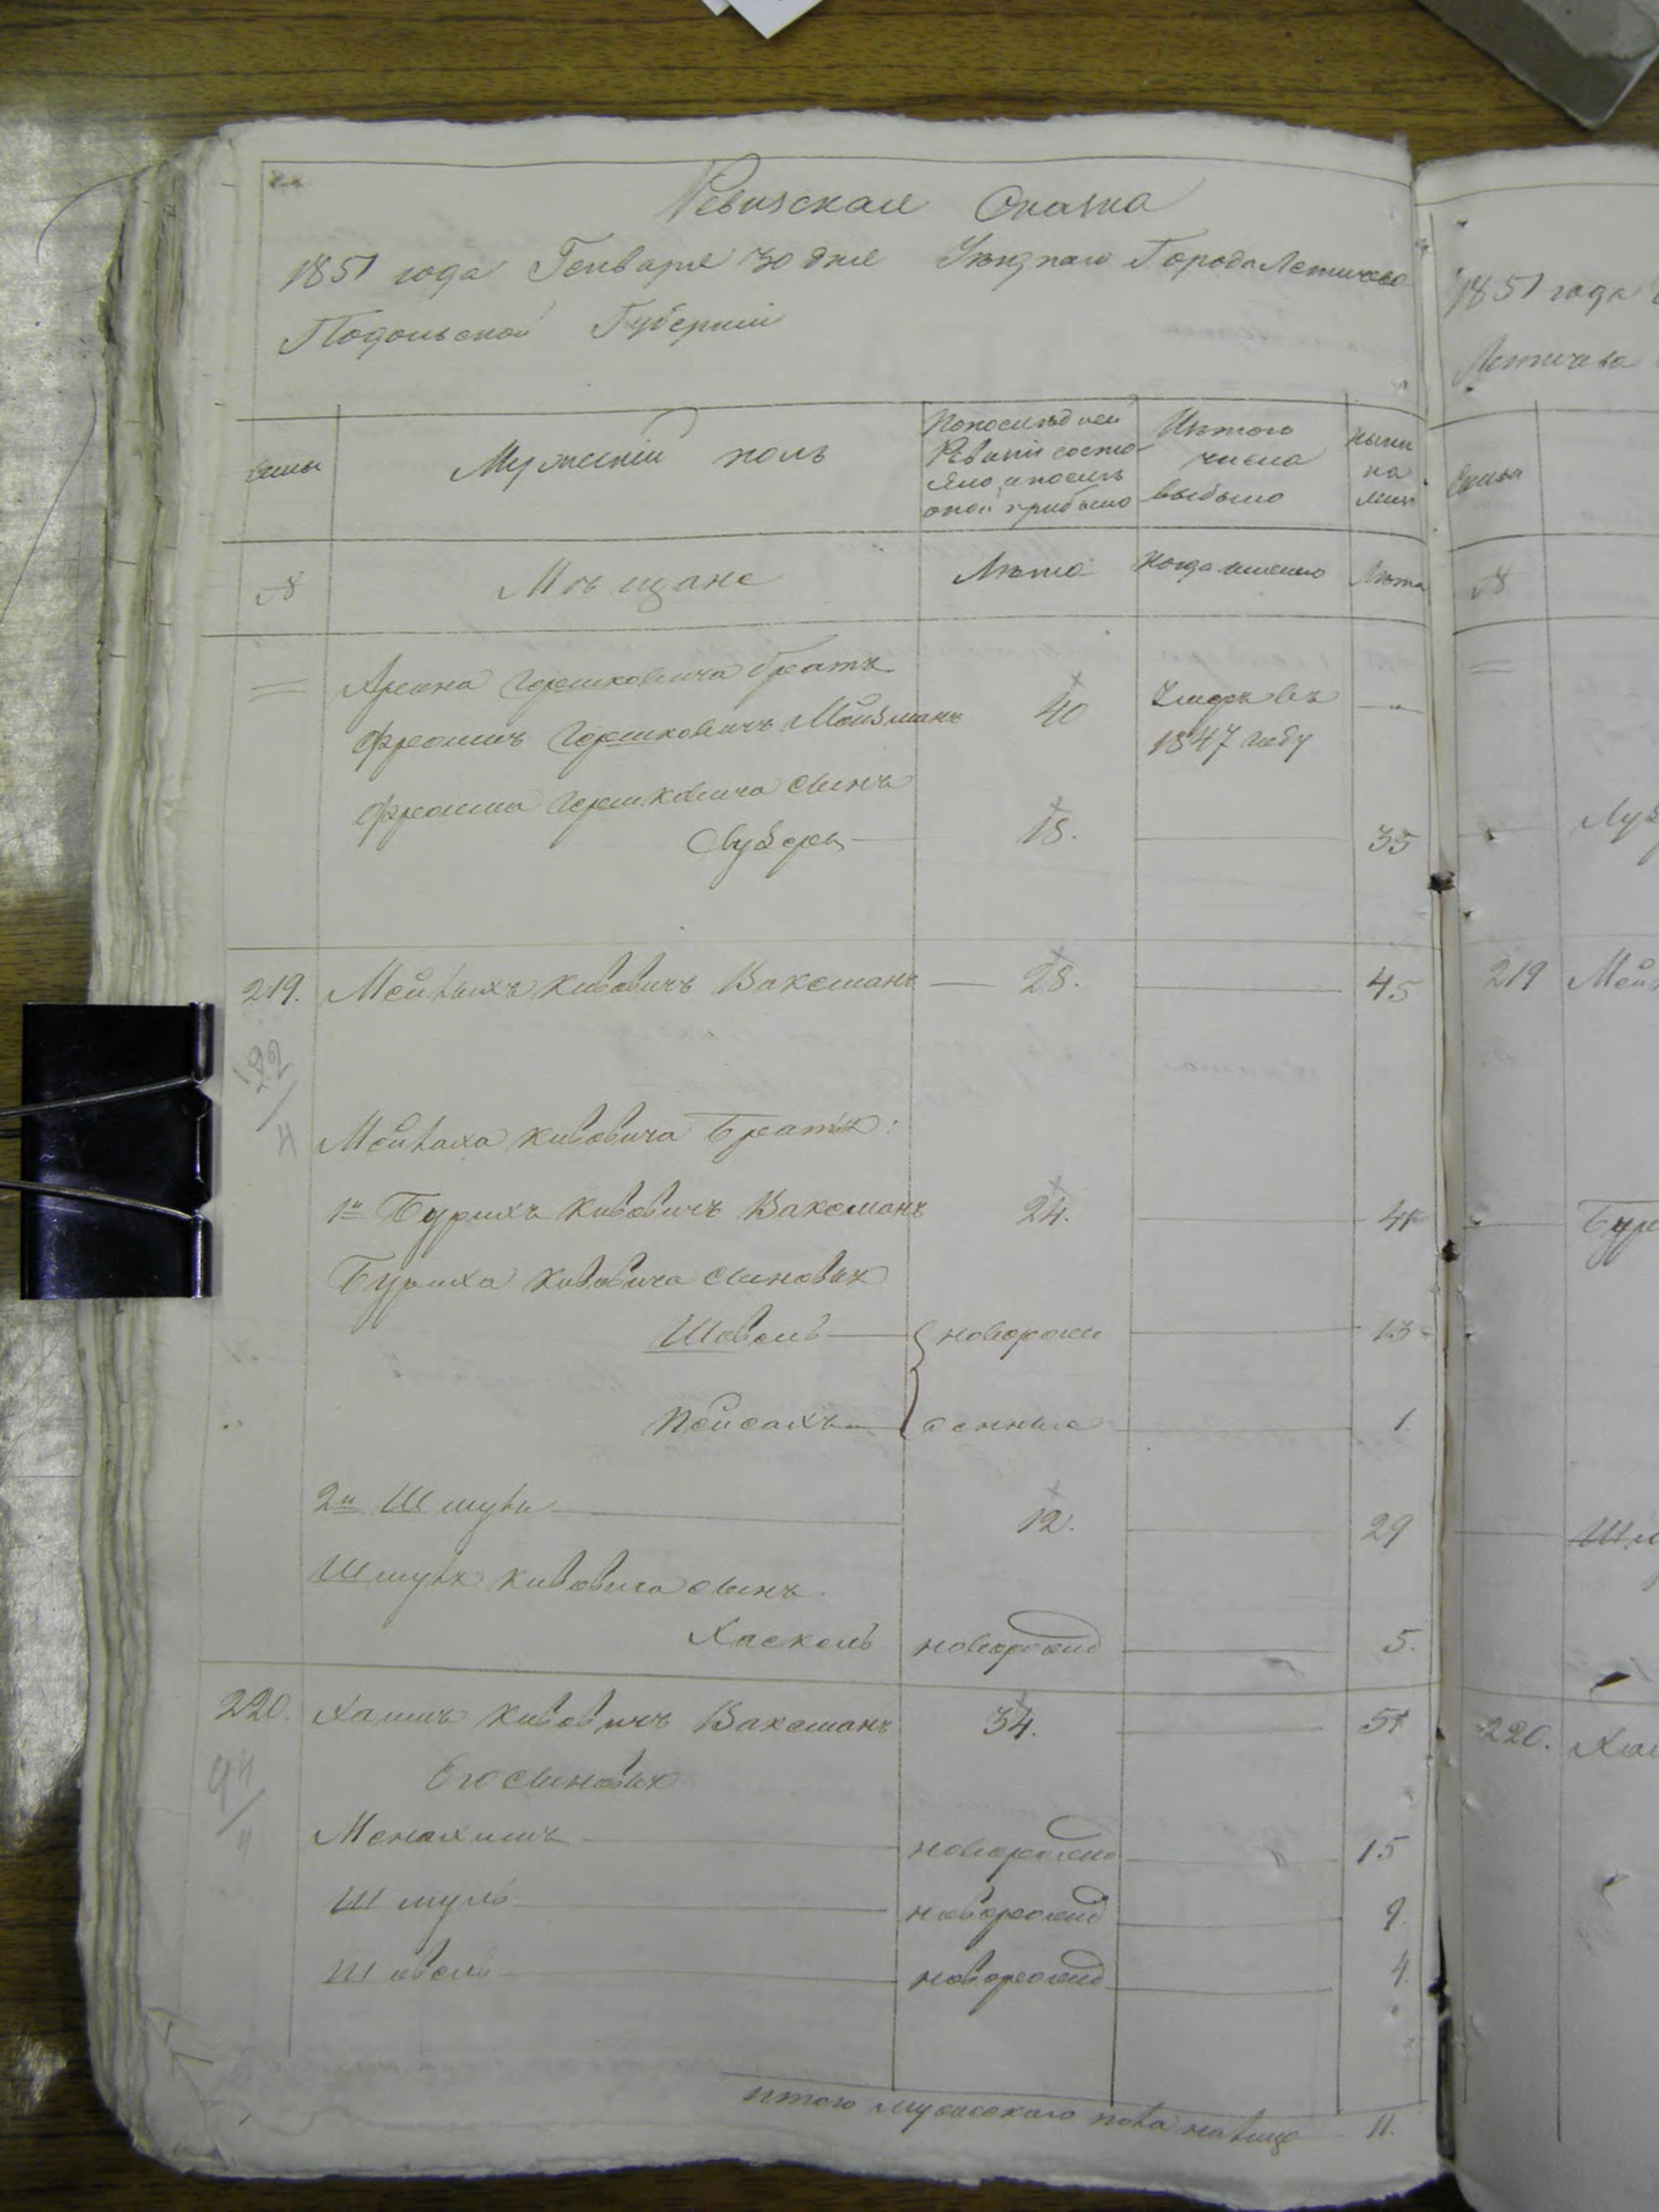 Ревизская Сказка
1851 года Генваря 30 дня Уѣзднаго Города Летичева
Подольской Губерніи
Семьи
Мужескій полъ
По послѣдней
Ревизіи состо-
яло и послѣ
оной прибыло
Изъ того
числа
выбыло
Нынѣ
на
лицо
№
Мѣщане
Лѣта
Когда именно
Лѣта
Гершковича братъ
Фроимъ Гершковичъ
40
Умеръ въ
1847 году
—
Фроима Гершковича сынъ
18.
35
219.
Кивовичъ Ваксманъ
28.
45
122
4
Кивовича Братья:
1й Бурихъ Кивовичъ Ваксманъ
24.
41
Буриха Кивовича сыновья
Шовель
новорож
13
Пейсахъ
денные
1.
2й Шмуль
12.
29
Шмуля Кивовича сынъ
Хаскель
новорожд
5.
220.
Хаимъ Кивовичъ Ваксманъ
34.
51
Его сыновья
Менахимъ
новорожд
15
Шмуль
новорожд
9.
Шовель
новорожд
4.
итого мужескаго пола на лицо
11.
1851 года
Летичева
Семьи
№
219
220.